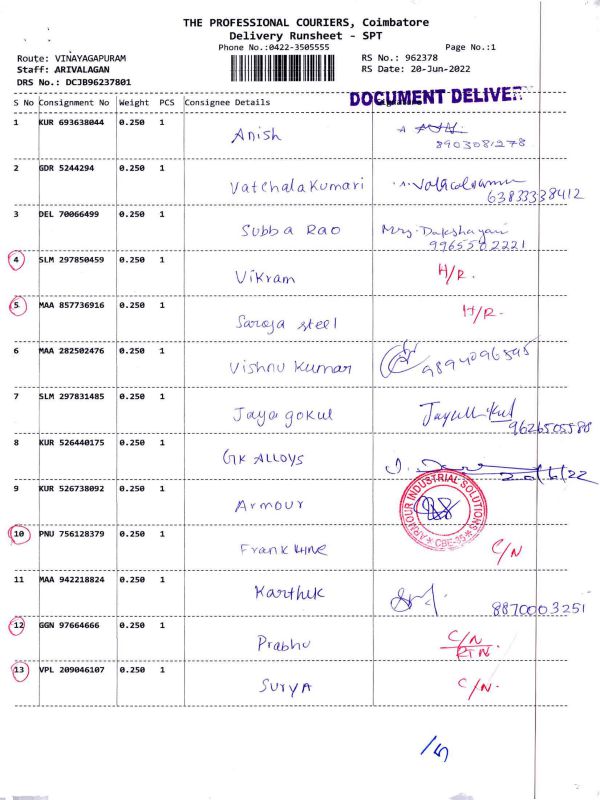 THE PROFESSIONAL COURIERS, Coimbatore
Delivery Runsheet - SPT
Phone No.:0422-3505555 Page No.:1
Route: VINAYAGAPURAM RS No.: 962378
Staff: ARIVALAGAN RS Date: 20-Jun-2022
DRS No.: DCJB96237801
DOCUMENT DELIVER
S No Consignment No Weight PCS Consignee Details
1 KUR 693638044 0.250 1 Anish
8903081278
2 GDR 5244294 0.250 1 Vatchala Kumari
63833338412
3 DEL 70066499 0.250 1 Subba Rao Mrs. Dakshayani
9965582221
4 SLM 297850459 0.250 1 Vikram H/R.
5 MAA 857736916 0.250 1 Saroja steel H/R-
6 MAA 282502476 0.250 1 Vishnu Kumar 9894096595
7 SLM 297831485 0.250 1 Jaya gokul
9626505580
8 KUR 526440175 0.250 1 GK ALLOYS
20/6/22
9 KUR 526738092 0.250 1 Armour
ARMOUR INDUSTRIAL SOLUTIONS
CBE-35
10 PNU 756128379 0.250 1 Frank line C/N
11 MAA 942218824 0.250 1 Karthik
8870003251
12 GGN 97664666 0.250 1 Prabhu C/N
RTN.
13 VPL 209046107 0.250 1 SURYA C/N.